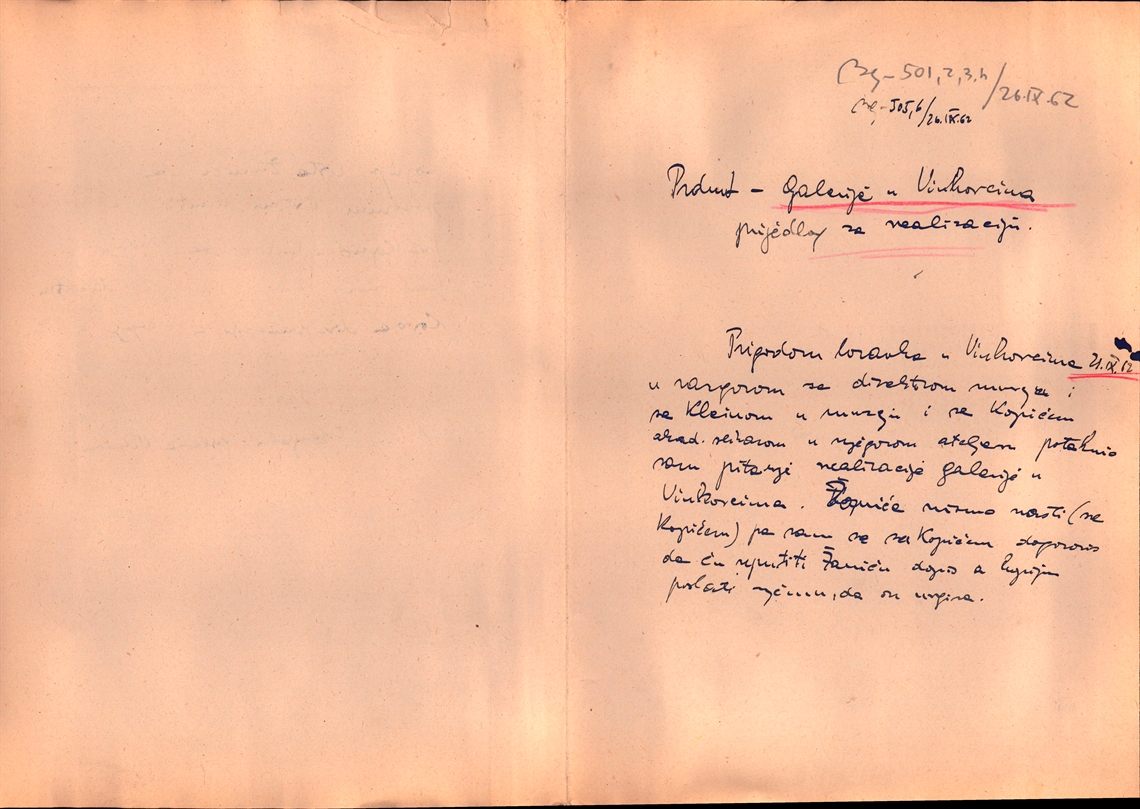 501,2,3,4/26.IX.62
505,6/26.IX.62
Predmet – Galerije u Vinkovcima
prijedlog za realizaciju.
Prigodom boravka u Vinkovcima 21.IX.62
u razgovoru sa direktorom muzeja i
sa Kleinom u muzeju i sa Kopićem
akad. slikarom u njegovom ateljeu potaknuo
sam pitanje realizacije galerije u
Vinkovcima. nismo našli (sa
Kopićem) pa sam se sa Kopićem dogovorio
da ću uputiti Žaniću dopis a kopiju
poslati njemu, da on urgira.